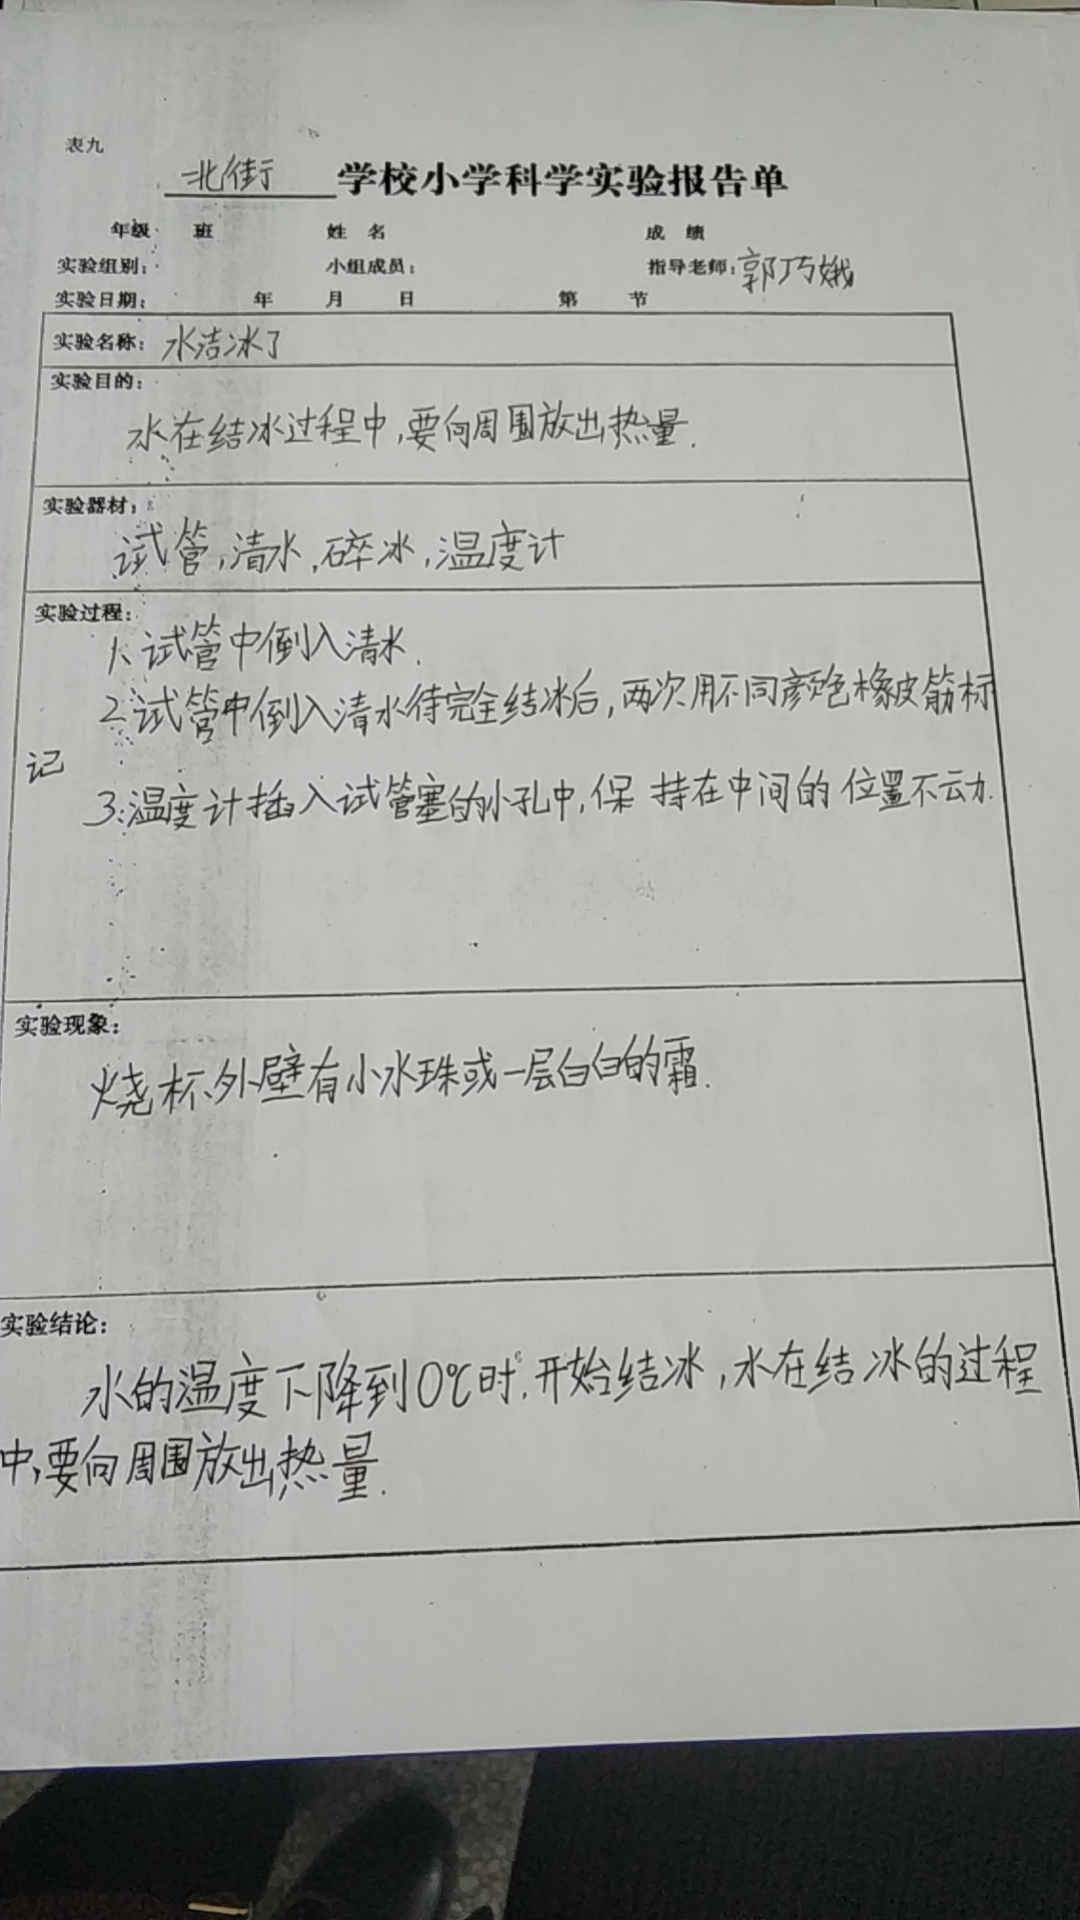 表九
北街学校小学科学实验报告单
年级 班 姓名 成绩
实验组别： 小组成员： 指导老师：郭巧娥
实验日期： 年 月 日 第 节
实验名称：水洁冰了
实验目的：
水在结冰过程中,要向周围放出热量.
实验器材：
试管,清水,碎冰,温度计
实验过程：
1、试管中倒入清水.
2.试管中倒入清水待完全结冰后,两次用不同颜色橡皮筋标
记
3.温度计插入试管塞的小孔中,保持在中间的位置不动.
实验现象：
烧杯外壁有小水珠或一层白白的霜.
实验结论：
水的温度下降到0℃时.开始结冰,水在结冰的过程
中,要向周围放出热量.